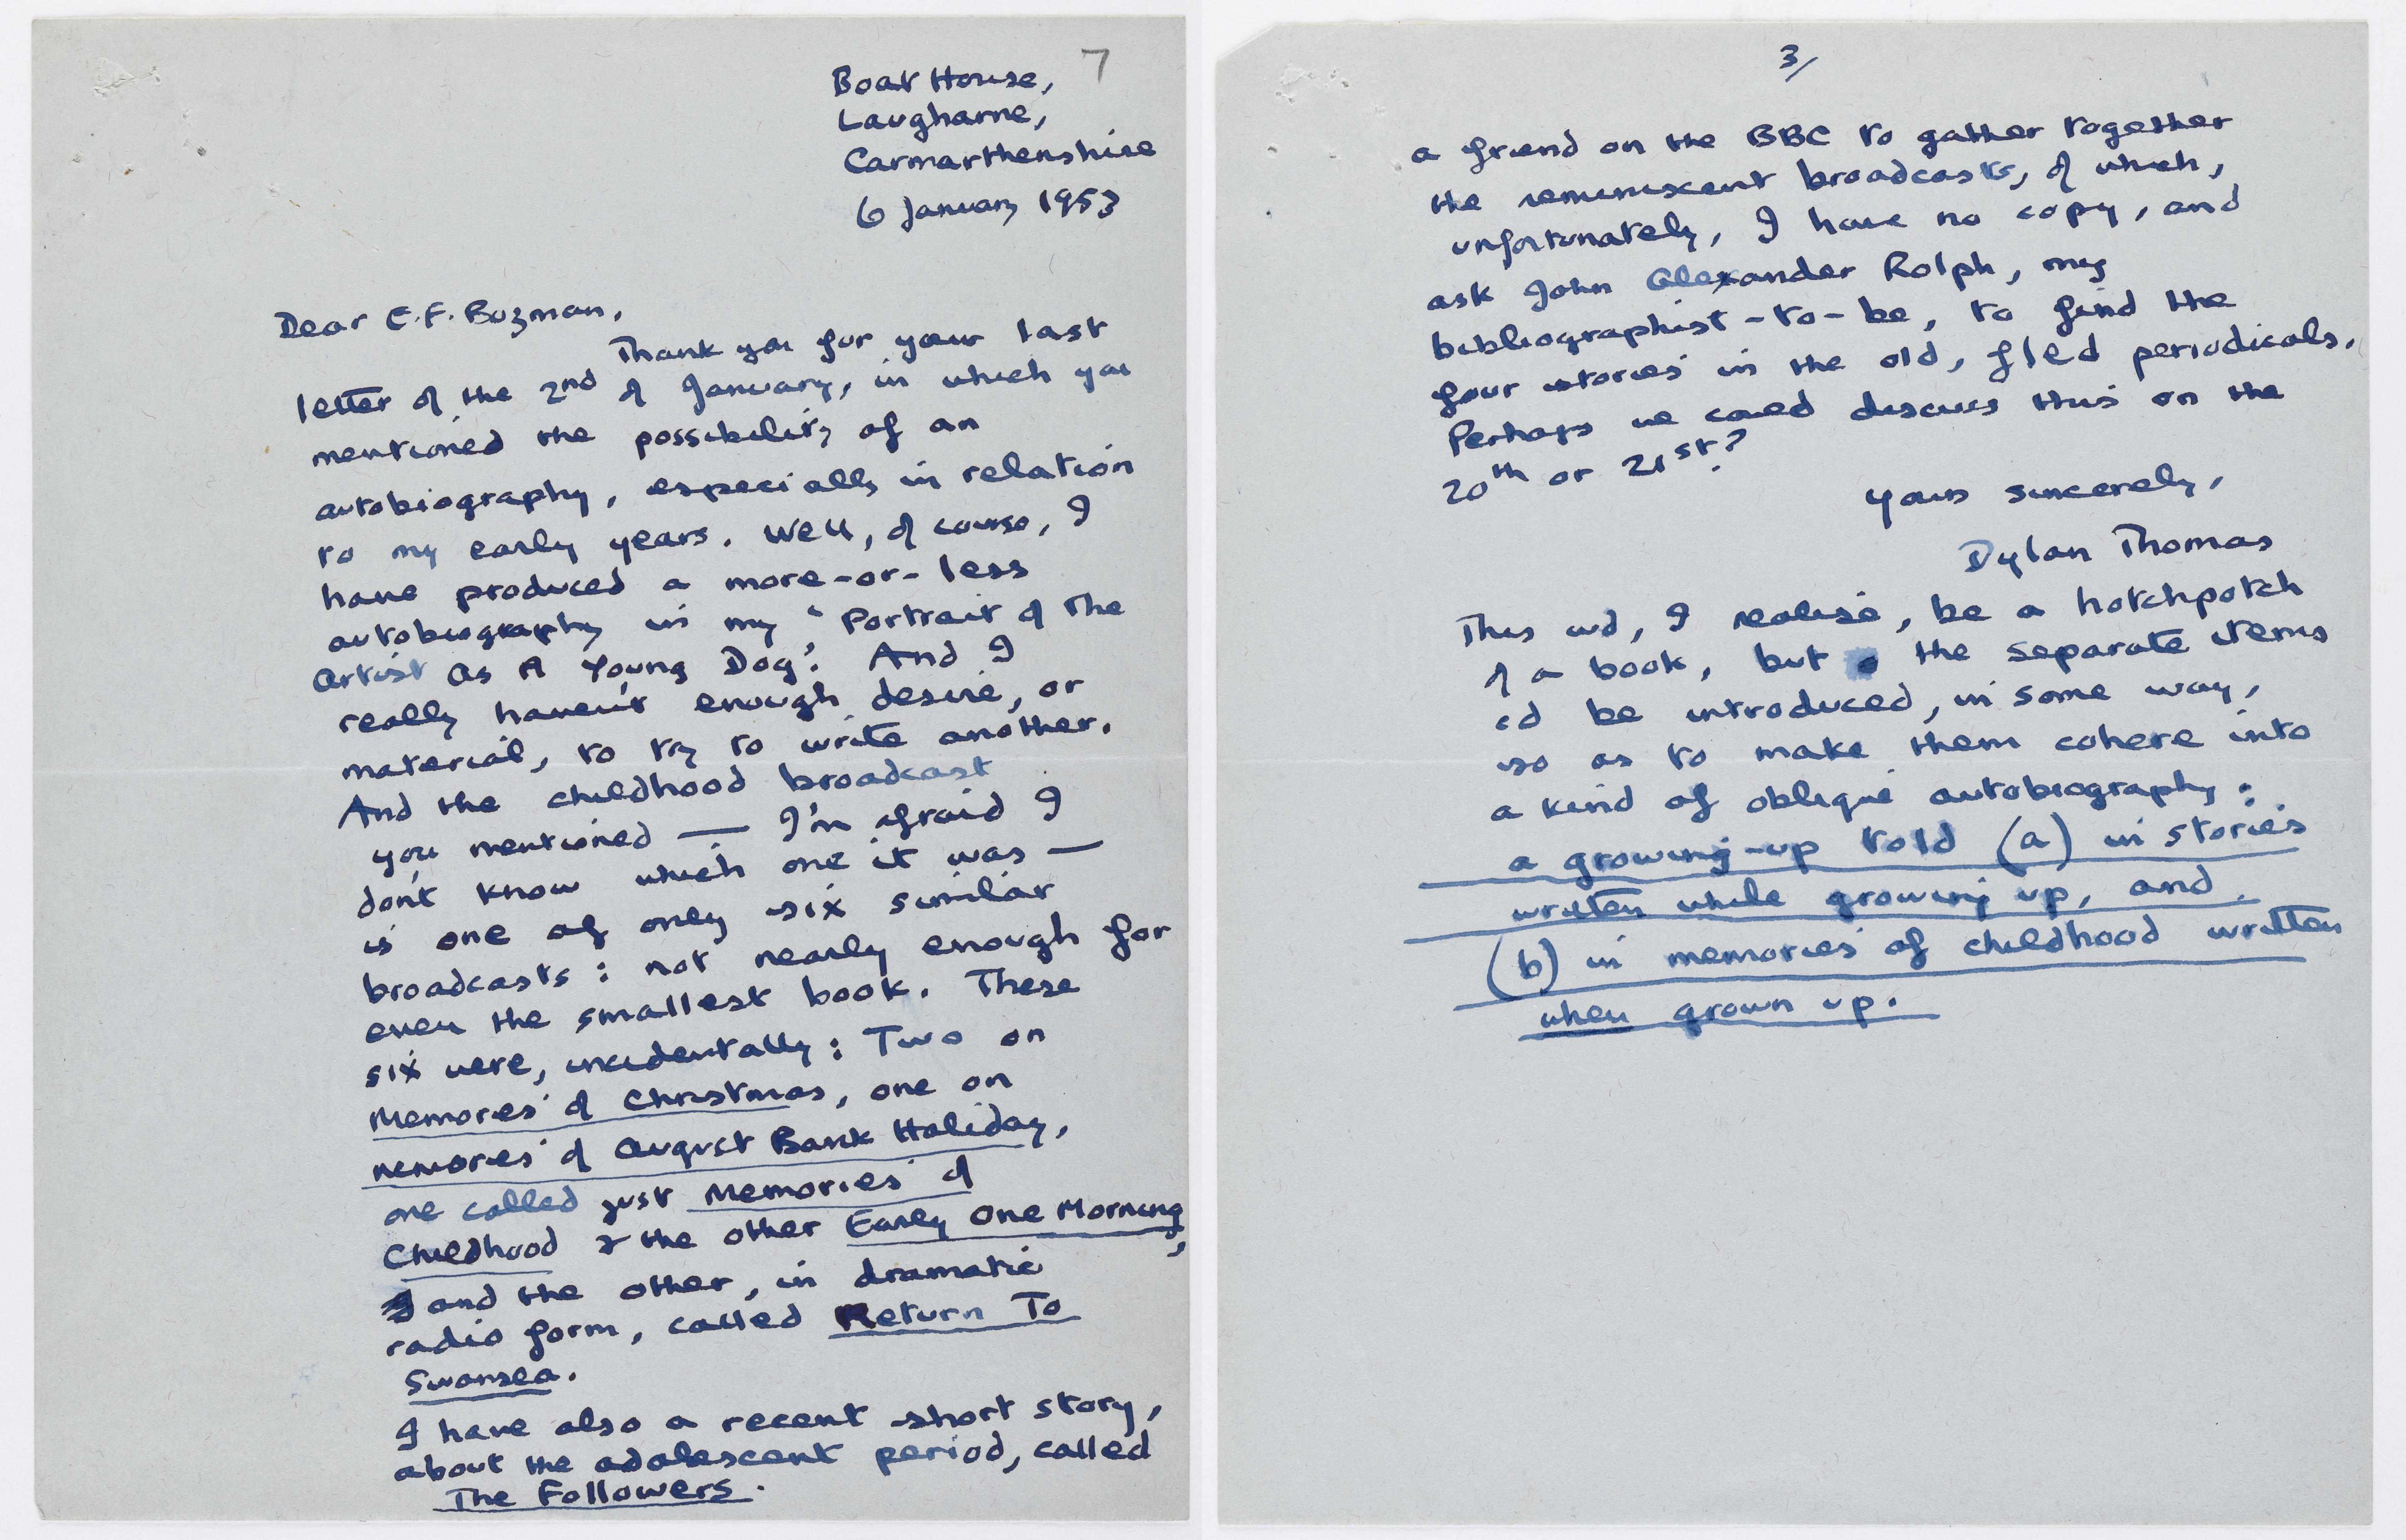 7
Boat House,
Laugharne,
Carmarthenshire
6 January 1953
Dear E.F. Bozman,
Thank you for your last
letter of the 2nd of January, in which you
mentioned the possibility of an
autobiography, especially in relation
to my early years. Well, of course, I
have produced a more-or-less
autobiography in my "Portrait of The
Artist As A Young Dog". And I
really haven't enough desire, or
material, to try to write another.
And the childhood broadcast
you mentioned — I'm afraid I
don't know which one it was —
is one of only six similar
broadcasts: not nearly enough for
even the smallest book. These
six were, incidentally: Two on
Memories of Christmas, one on
memories of August Bank Holiday,
one called just Memories of
Childhood & the other Early One Morning,
and the other, in dramatic
radio form, called Return To
Swansea.
I have also a recent short story,
about the adolescent period, called
The Followers.
3/
a friend on the BBC to gather together
the reminiscent broadcasts, of which,
unfortunately, I have no copy, and
ask John Alexander Rolph, my
bibliographist-to-be, to find the
four stories in the old, fled periodicals.
Perhaps we could discuss this on the
20th or 21st?
Yours sincerely,
Dylan Thomas
This wd, I realise, be a hotchpotch
of a book, but the separate items
cd be introduced, in some way,
so as to make them cohere into
a kind of oblique autobiography:
a growing-up told (a) in stories
written while growing up, and
(b) in memories of childhood written
when grown up.